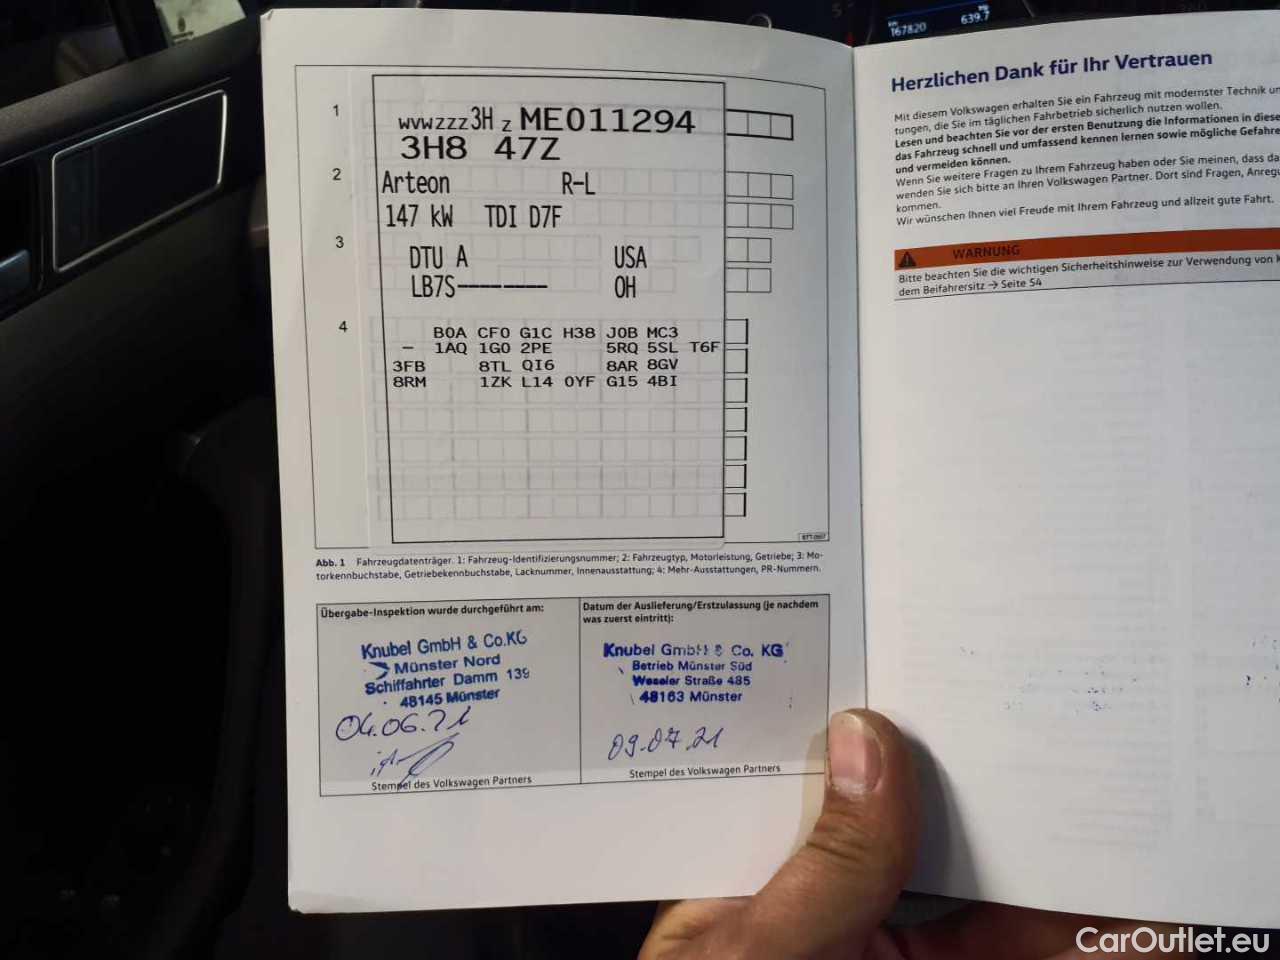 km
167820
639.7
1
wvwzzz 3H z ME011294
3H8 47Z
2
Arteon R-L
147 kW TDI D7F
3
DTU A USA
LB7S--------- OH
4
B0A CF0 G1C H38 J0B MC3
- 1AQ 1G0 2PE 5RQ 5SL T6F
3FB 8TL QI6 8AR 8GV
8RM 1ZK L14 0YF G15 4BI
Abb. 1 Fahrzeugdatenträger. 1: Fahrzeug-Identifizierungsnummer; 2: Fahrzeugtyp, Motorleistung, Getriebe; 3: Mo-
torkennbuchstabe, Getriebekennbuchstabe, Lacknummer, Innenausstattung; 4: Mehr-Ausstattungen, PR-Nummern.
Übergabe-Inspektion wurde durchgeführt am:
Knubel GmbH & Co.KG
Münster Nord
Schiffahrter Damm 139
48145 Münster
04.06.21
Stempel des Volkswagen Partners
Datum der Auslieferung/Erstzulassung (je nachdem
was zuerst eintritt):
Knubel GmbH & Co. KG
Betrieb Münster Süd
Weseler Straße 485
48163 Münster
09.07.21
Stempel des Volkswagen Partners
Herzlichen Dank für Ihr Vertrauen
Mit diesem Volkswagen erhalten Sie ein Fahrzeug mit modernster Technik
tungen, die Sie im täglichen Fahrbetrieb sicherlich nutzen wollen.
Lesen und beachten Sie vor der ersten Benutzung die Informationen in diese
das Fahrzeug schnell und umfassend kennen lernen sowie mögliche Gefahre
und vermeiden können.
Wenn Sie weitere Fragen zu Ihrem Fahrzeug haben oder Sie meinen, dass da
wenden Sie sich bitte an Ihren Volkswagen Partner. Dort sind Fragen, Anregu
kommen.
Wir wünschen Ihnen viel Freude mit Ihrem Fahrzeug und allzeit gute Fahrt.
WARNUNG
Bitte beachten Sie die wichtigen Sicherheitshinweise zur Verwendung von
dem Beifahrersitz → Seite 54
CarOutlet.eu